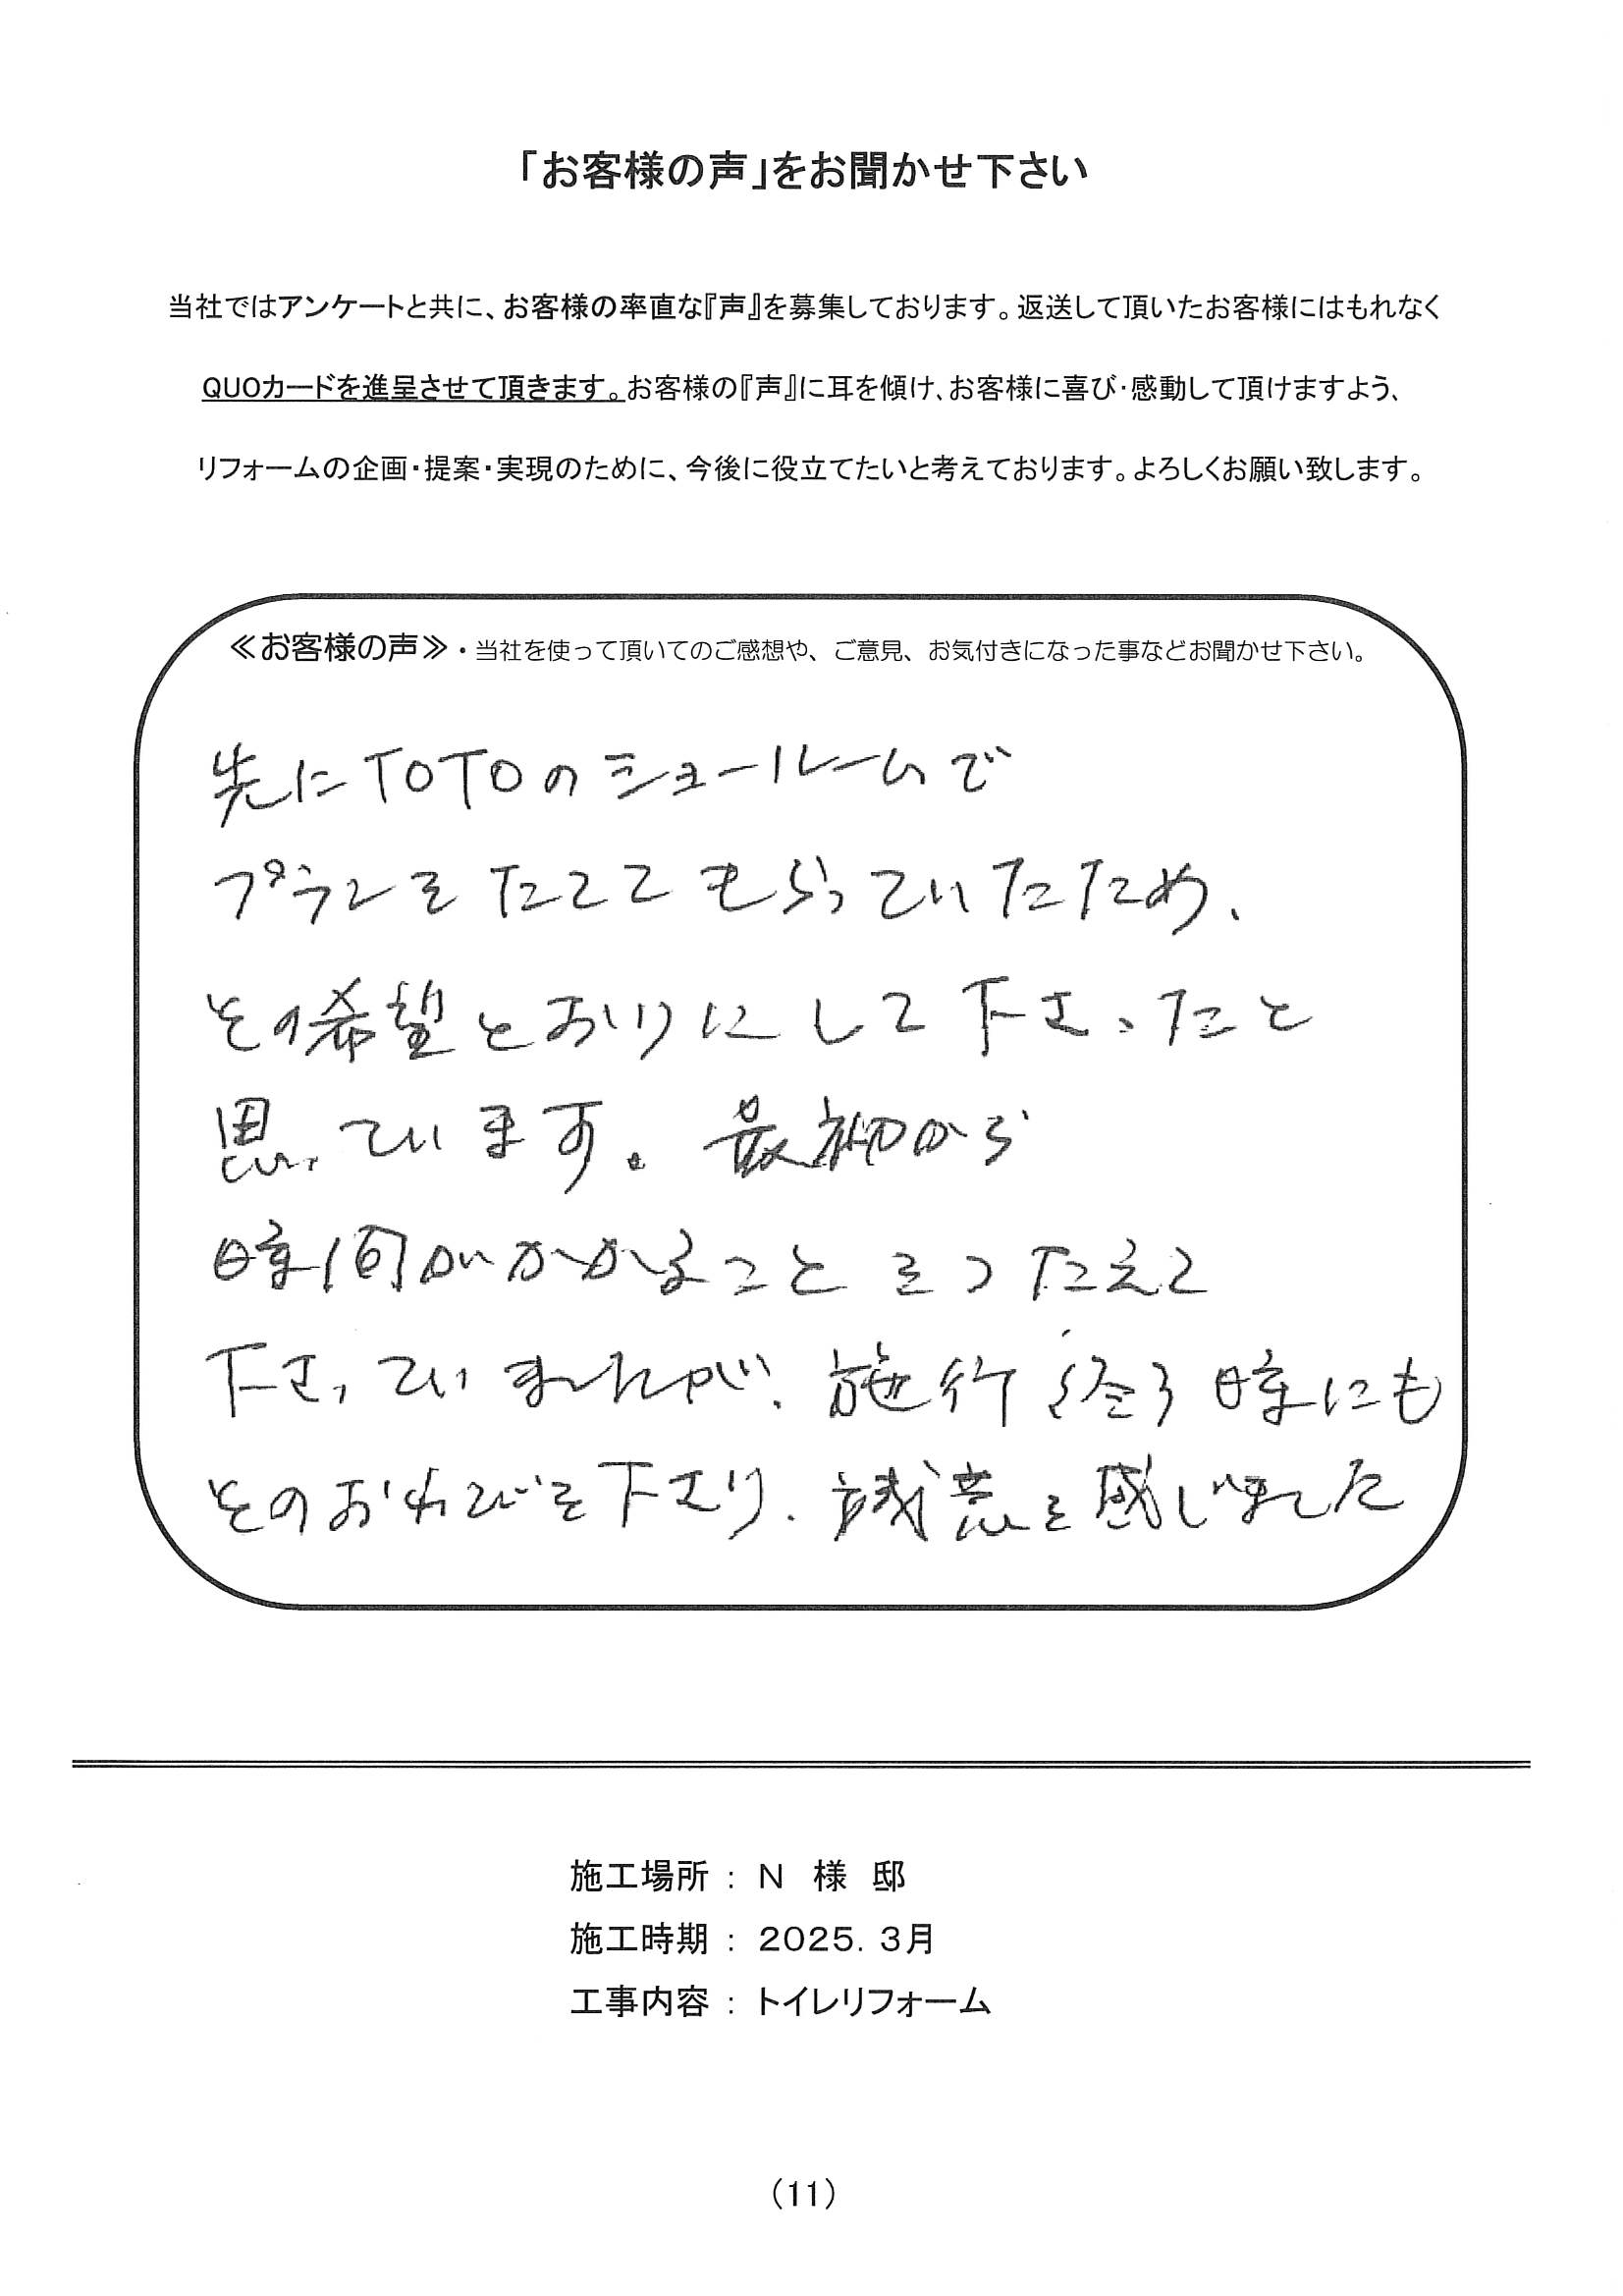 「お客様の声」をお聞かせ下さい
当社ではアンケートと共に、お客様の率直な『声』を募集しております。返送して頂いたお客様にはもれなく
QUOカードを進呈させて頂きます。お客様の『声』に耳を傾け、お客様に喜び・感動して頂けますよう、
リフォームの企画・提案・実現のために、今後に役立てたいと考えております。よろしくお願い致します。
≪お客様の声≫・当社を使って頂いてのご感想や、ご意見、お気付きになった事などお聞かせ下さい。
先にTOTOのショールームで
プランをたててもらっていたため、
その希望とおりにして下さったと
思っています。最初から
時間がかかることをつたえて
下さっていましたが、施行終る時にも
そのおわびを下さり、誠意を感じました
施工場所 : N 様 邸
施工時期 : 2025. 3月
工事内容 : トイレリフォーム
(11)